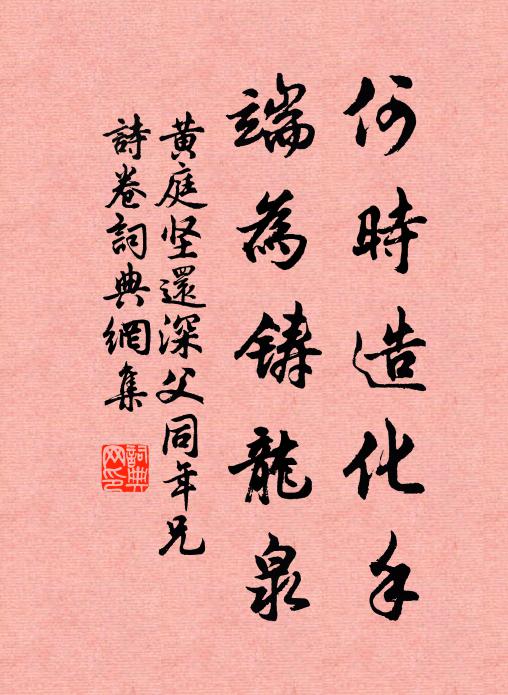 何時造化手
端為鑄龍泉
黄庭坚還深父同年兄
詩卷詞典網集
詞典网印